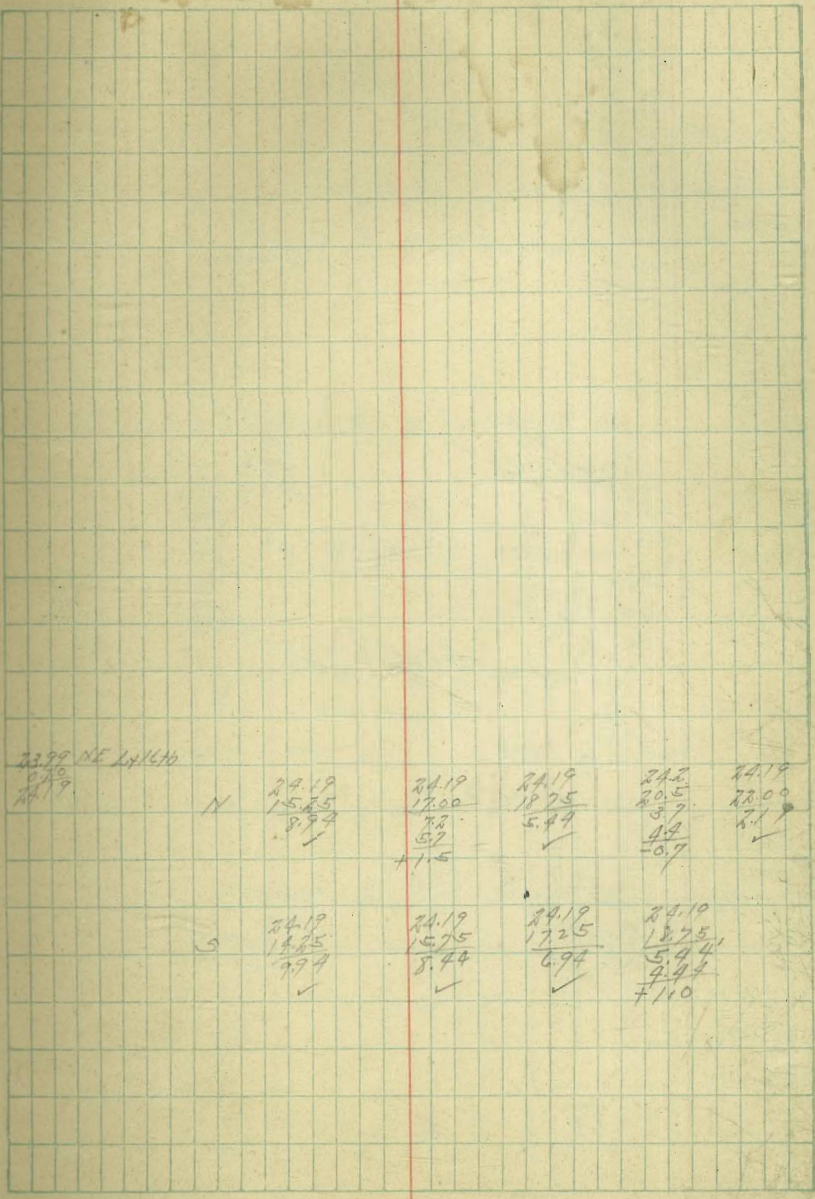 23.99 NE
0.20
24.19
N
24.19
15.25
8.94
✓
24.19
17.00
7.2
5.7
+1.5
24.19
18.75
5.44
✓
24.2
20.5
3.7
4.4
-0.7
24.19
22.00
2.19
✓
S
24.19
14.25
9.94
✓
24.19
15.75
8.44
✓
24.19
17.25
6.94
✓
24.19
18.75
5.44
4.44
+1.0